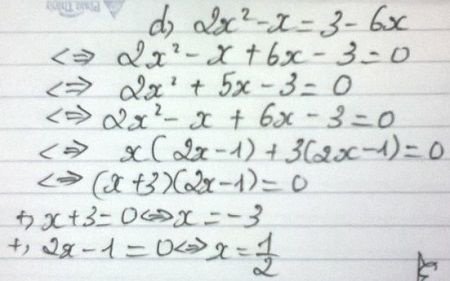 d, 2x² - x = 3 - 6x
<=> 2x² - x + 6x - 3 = 0
<=> 2x² + 5x - 3 = 0
<=> 2x² - x + 6x - 3 = 0
<=> x(2x-1) + 3(2x-1) = 0
<=> (x+3)(2x-1) = 0
+, x+3=0 <=> x = -3
+, 2x-1 = 0 <=> x = 1/2